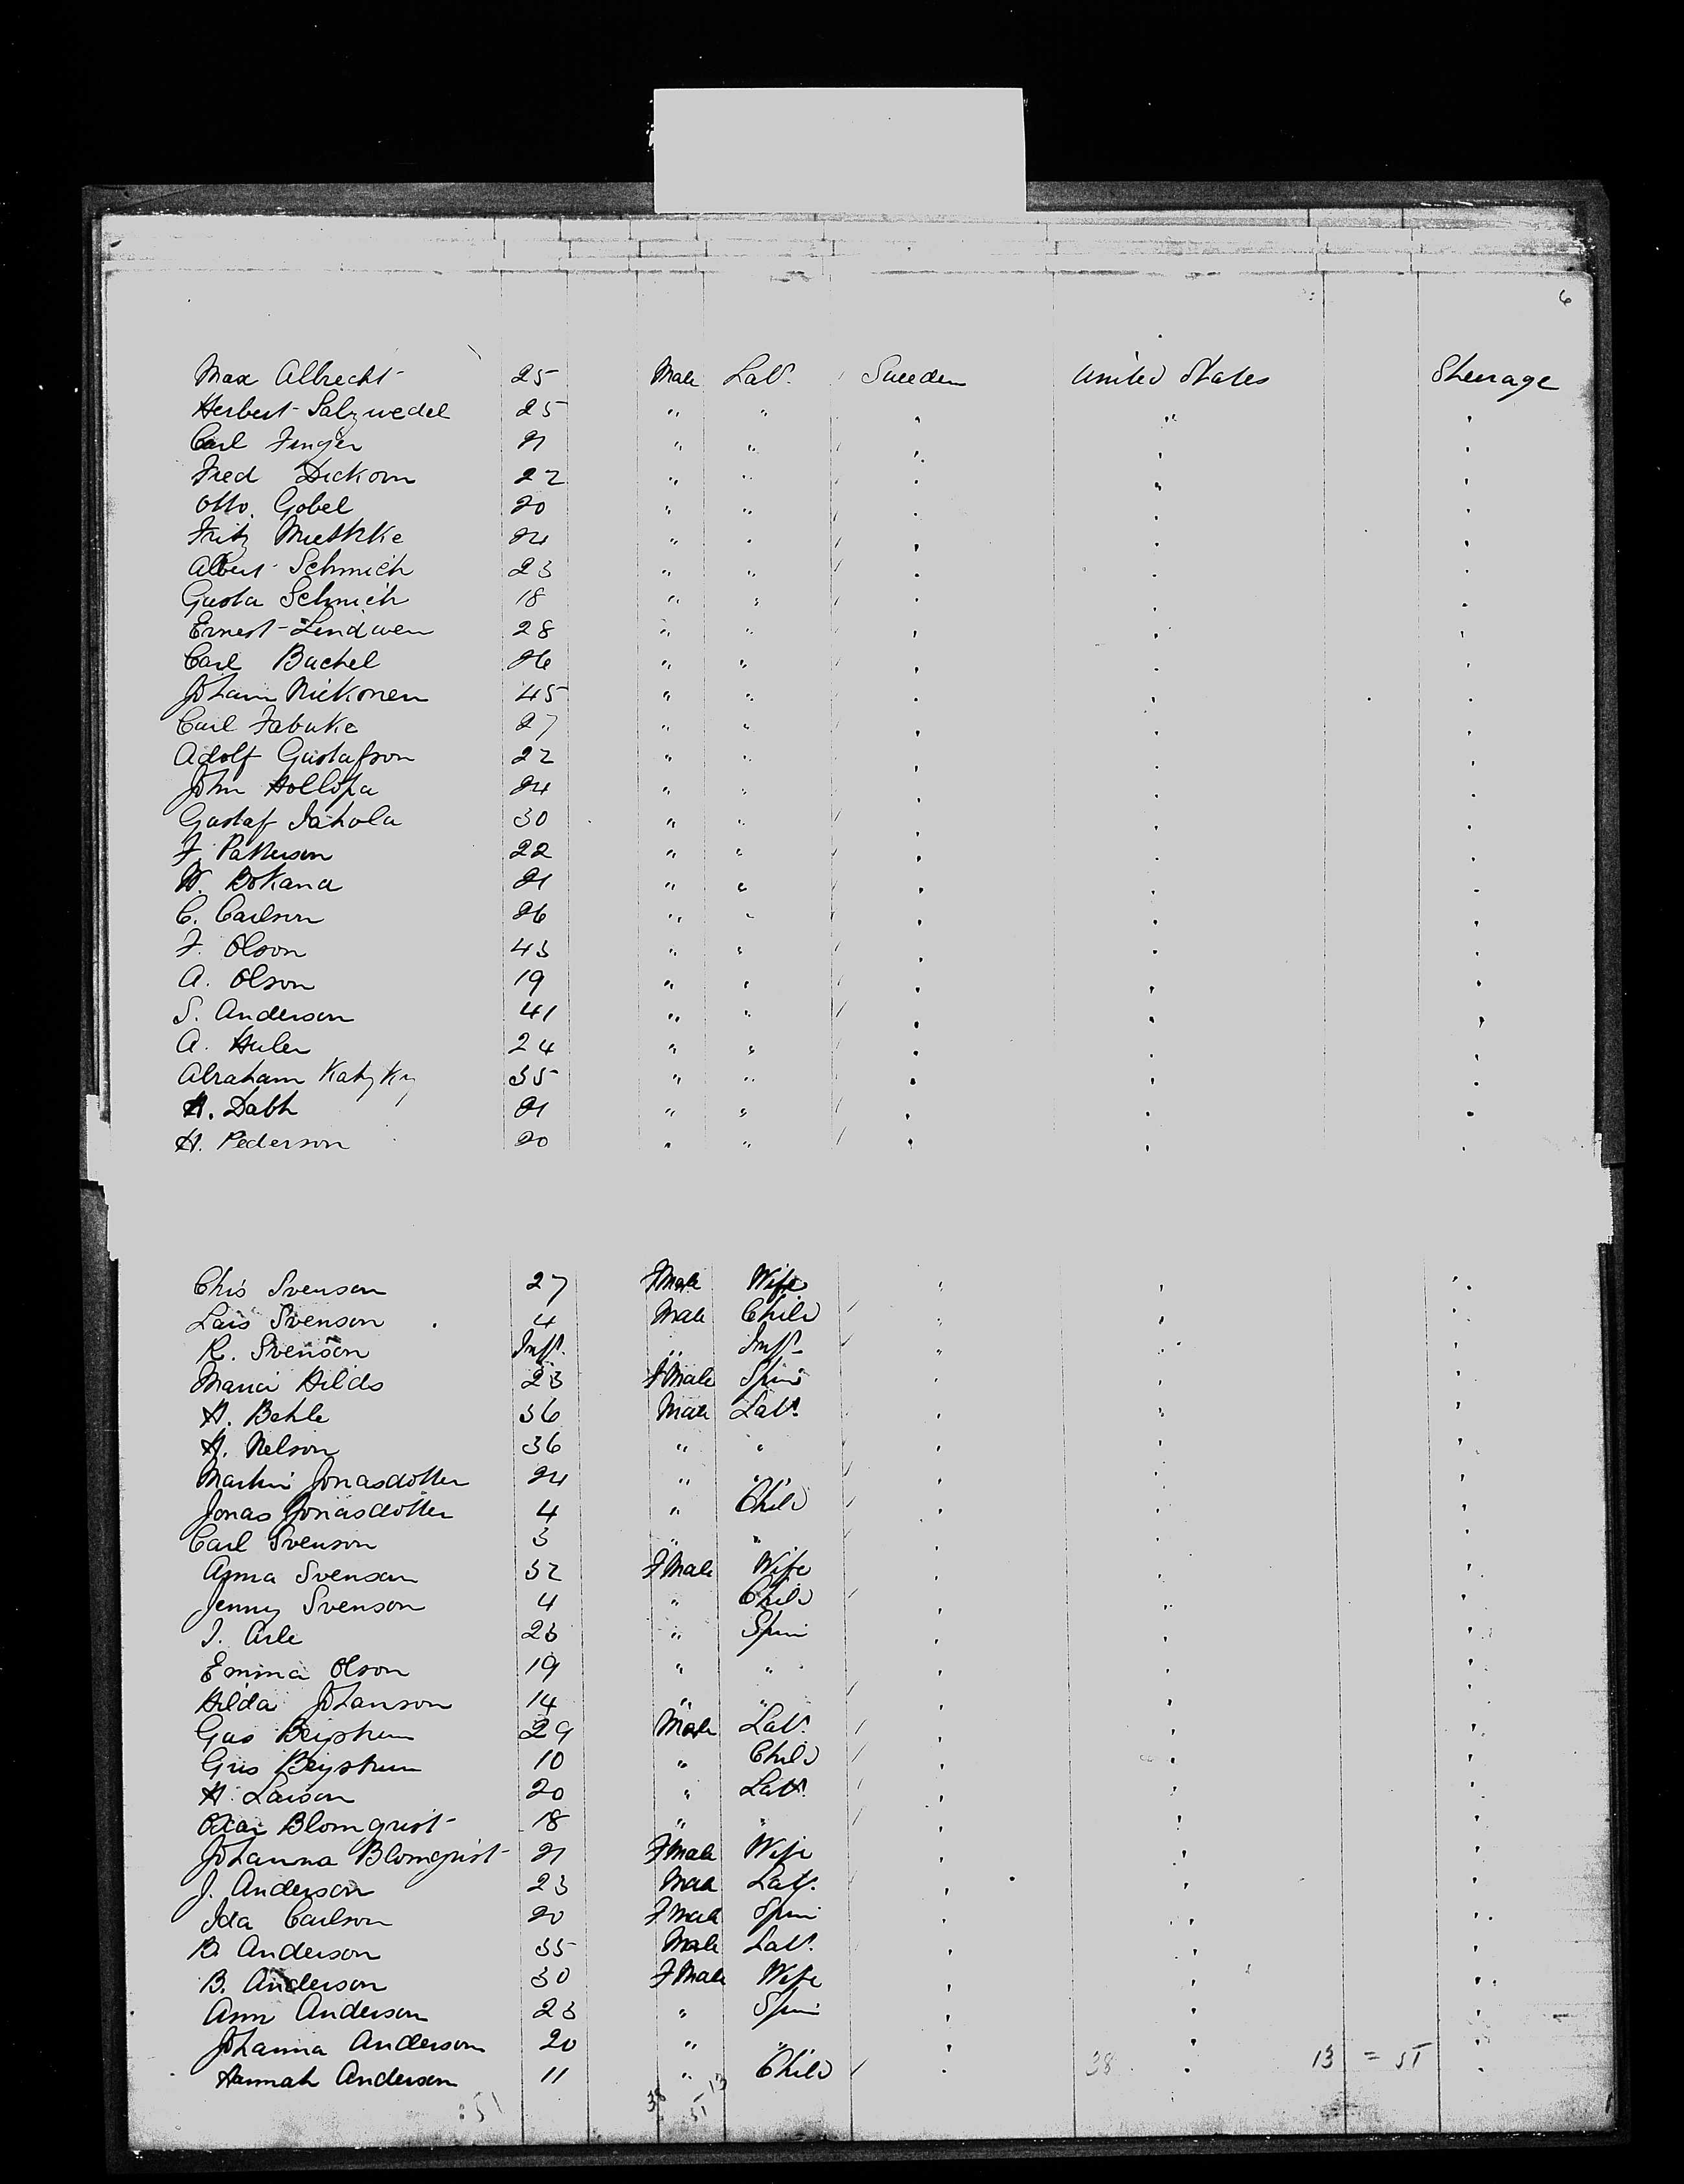 6
Max Albrecht 25 Male Lab. Sweden United States Steerage
Herbert Salzwedel 25 " " " " "
Carl Finger 21 " " " " "
Fred Dickom 22 " " " " "
Otto. Gobel 20 " " " " "
Fritz 24 " " " " "
Albert Schmich 23 " " " " "
Gusta Schmich 18 " " " " "
Ernest Lindwen 28 " " " " "
Carl Buchel 26 " " " " "
Johann Nickonen 45 " " " " "
Carl Fabuke 27 " " " " "
Adolf Gustafson 22 " " " " "
John Hollopa 24 " " " " "
Gustaf 30 " " " " "
F. Patterson 22 " " " " "
W. Bokana 21 " " " " "
C. Carlson 26 " " " " "
F. Olson 43 " " " " "
A. Olson 19 " " " " "
S. Anderson 41 " " " " "
A. Huler 24 " " " " "
Abraham 35 " " " " "
H. Dabh 21 " " " " "
H. Pederson 20 " " " " "
Chris Svenson 27 F Male Wife " " "
Lars Svenson 4 Male Child " " "
R. Svenson Inft. " Inft. " " "
Maria Hilds 23 F Male Spin " " "
H. Behle 36 Male Lab. " " "
H. Nelson 36 " " " " "
Martin Jonasdotter 24 " " " " "
Jonas Jonasdotter 4 " Child " " "
Carl Svenson 3 " " " " "
Anna Svenson 32 F Male Wife " " "
Jenny Svenson 4 " Child " " "
I. Arle 23 " Spin " " "
Emma Olson 19 " " " " "
Hilda Johanson 14 " " " " "
Gus 29 Male Lab. " " "
Gus 10 " Child " " "
H. Larson 20 " Lab. " " "
Oscar Blomqrist 18 " " " " "
Johanna Blomqrist 21 F Male Wife " " "
J. Anderson 23 Male Lab. " " "
Ida Carlson 20 F Male Spin " " "
B. Anderson 35 Male Lab. " " "
B. Anderson 30 F Male Wife " " "
Ann Anderson 23 " Spin " " "
Johanna Anderson 20 " " " " "
Hannah Anderson 11 " Child " " "
38 13 = 51
51 38 13
51